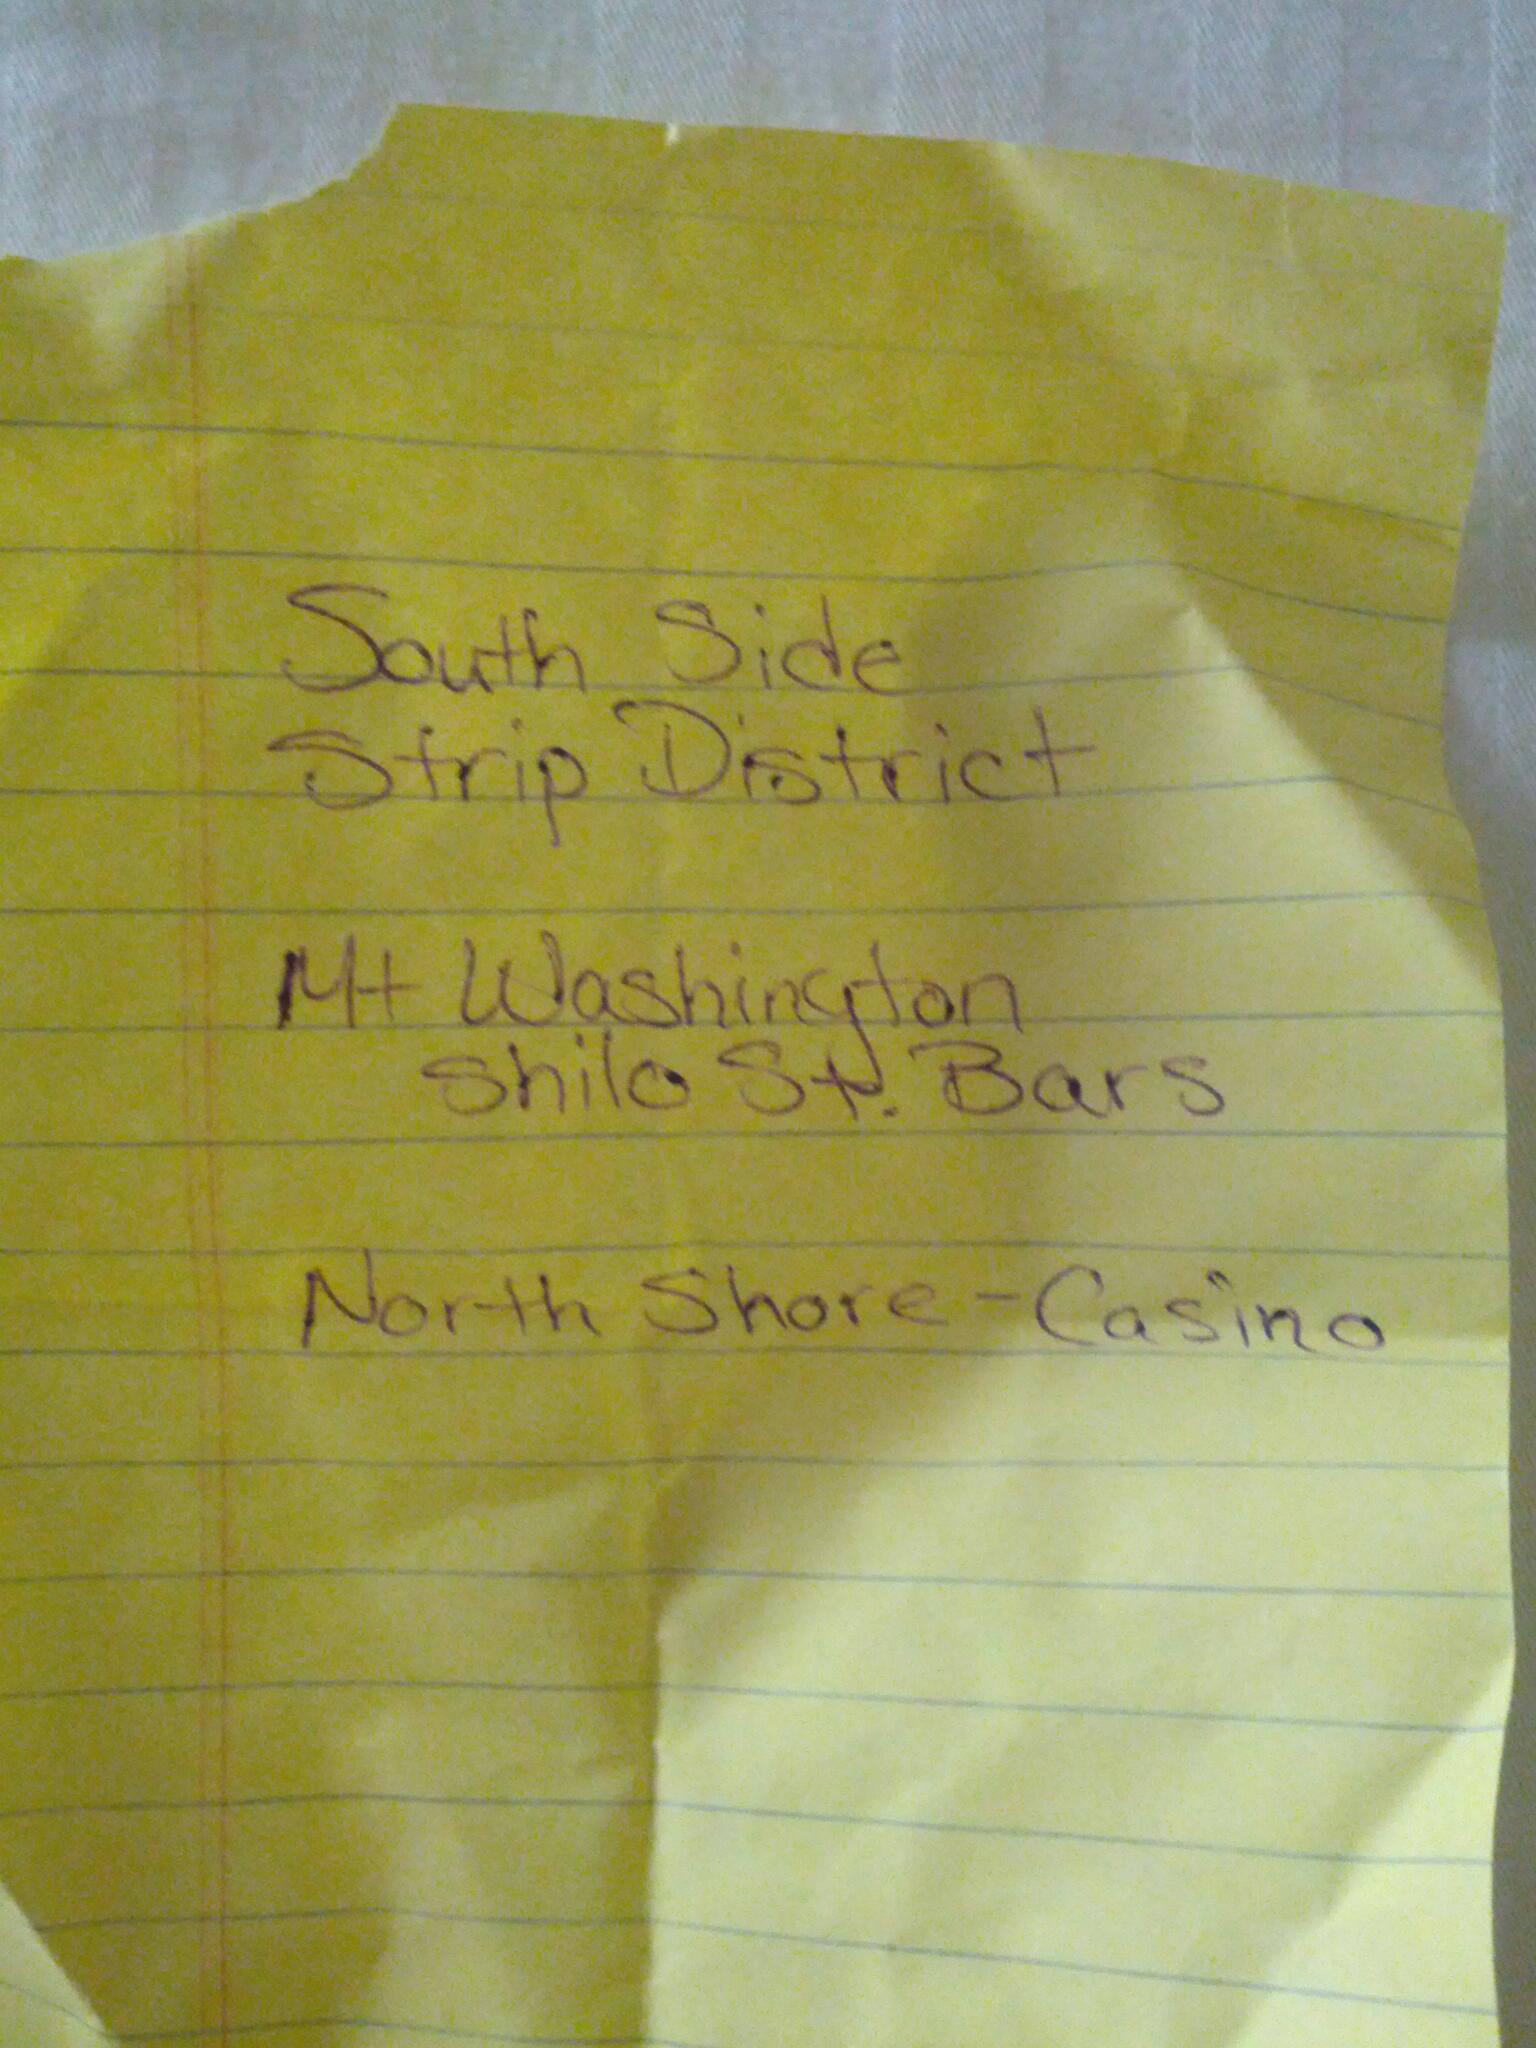 South Side
Strip District
Mt Washington
Shilo St. Bars
North Shore - Casino